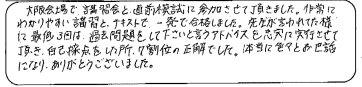 大阪会場で、講習会と直前模試に参加させて頂きました。非常に
わかりやすい講習と、テキストで、一発で合格しました。先生が言われた様
に最低3回は、過去問題をして下さいと言うアドバイスを忠実に実行させて
頂き、自己採点をした所、9割位の正解でした。本当に色々とお世話
になり、ありがとうございました。